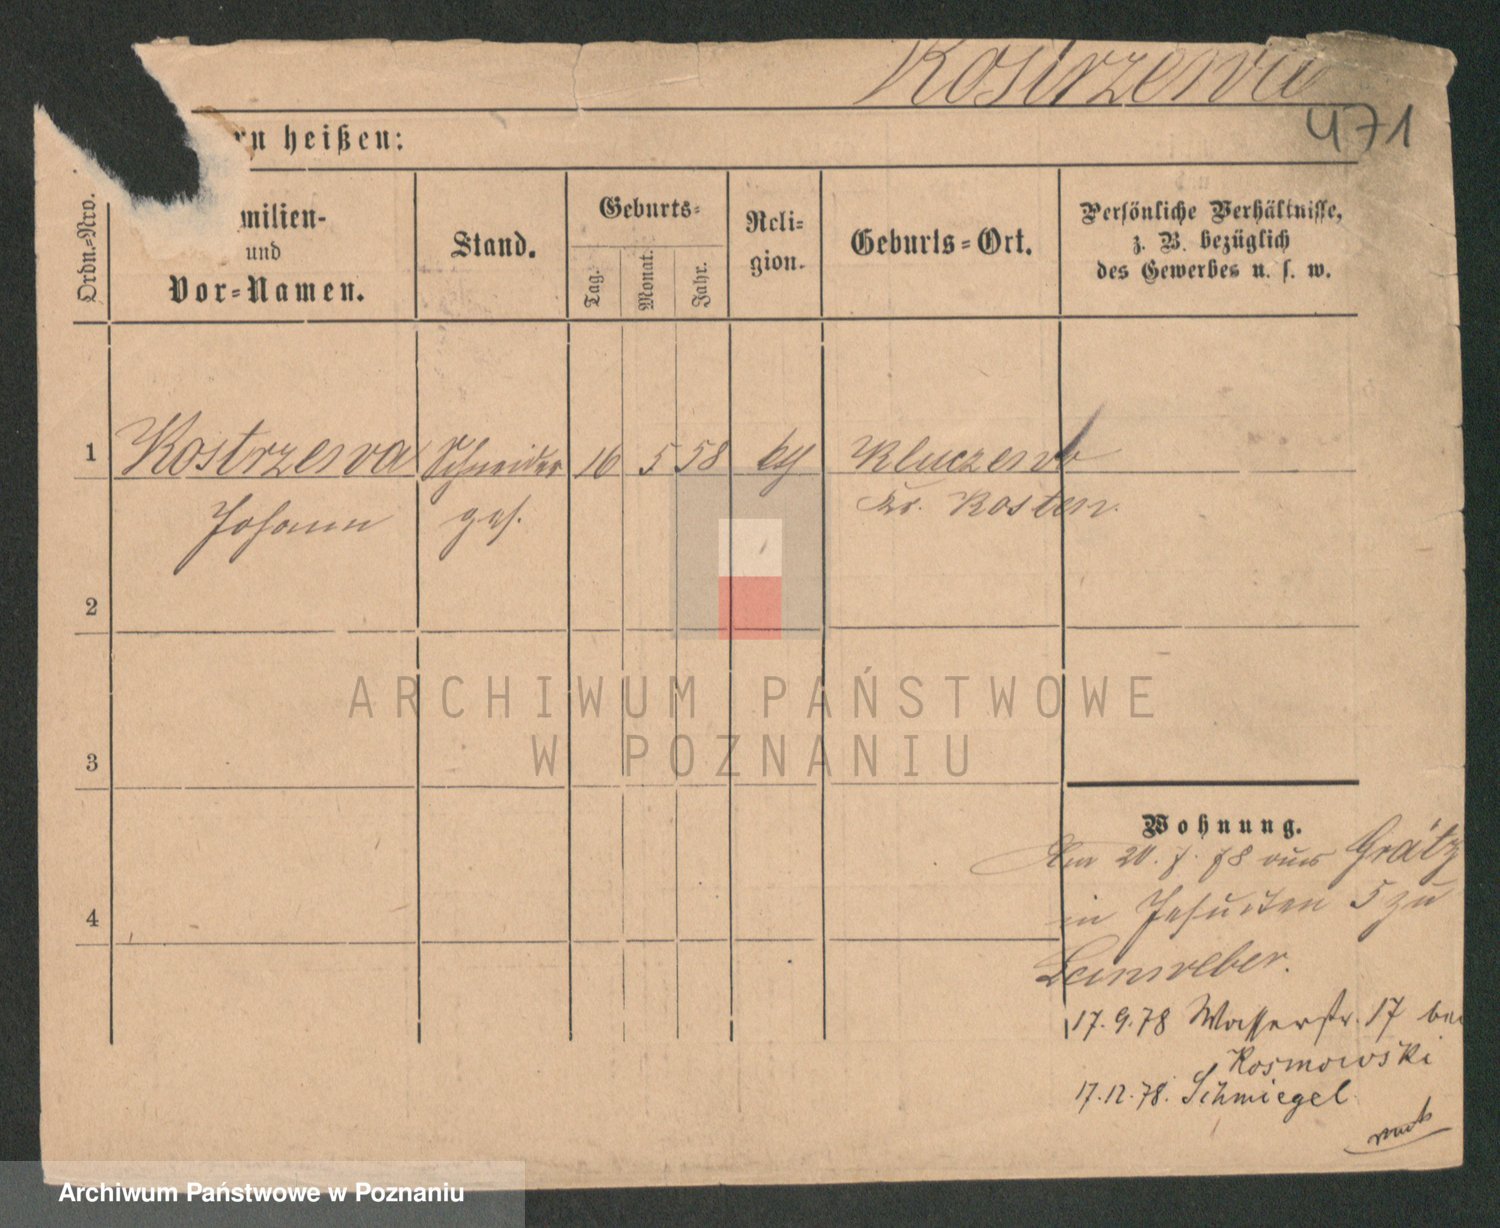 Kostrzewa
471
rn heißen:
Ordn.-Nro.
milien-
und
Vor-Namen.
Stand.
Geburts-
Tag.
Monat.
Jahr.
Reli-
gion.
Geburts-Ort.
Persönliche Verhältnisse,
z. B. bezüglich
des Gewerbes u. s. w.
1 Kostrzewa Schneider 16 5 58 kth Kluczewo
Johann ges. Kr. Kosten.
2
3
4
Wohnung.
Am 20. 7. 78 aus Grätz
in Jesuiten 5 zu
Leinweber.
17.9.78 Wasserstr. 17 bei
Kosmowski
17.12.78. Schmiegel
ARCHIWUM PAŃSTWOWE
W POZNANIU
Archiwum Państwowe w Poznaniu